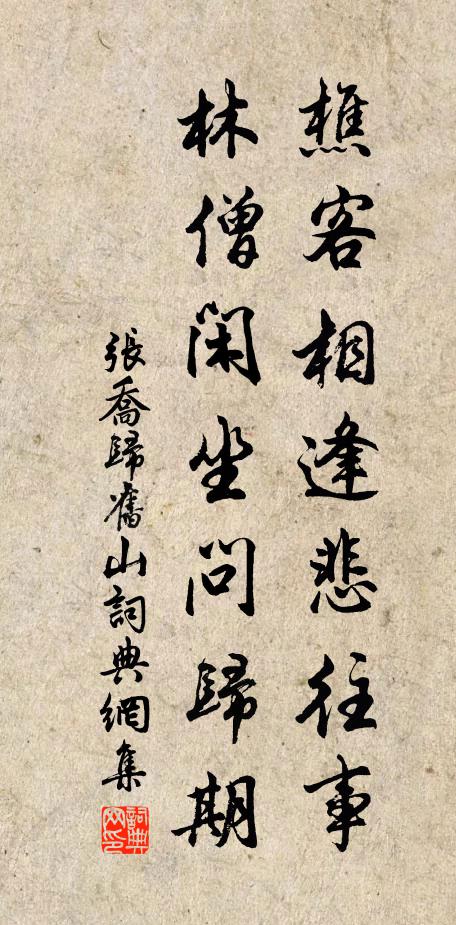 樵客相逢悲往事
林僧閑坐問歸期
張喬歸舊山詞典網集
詞典網印